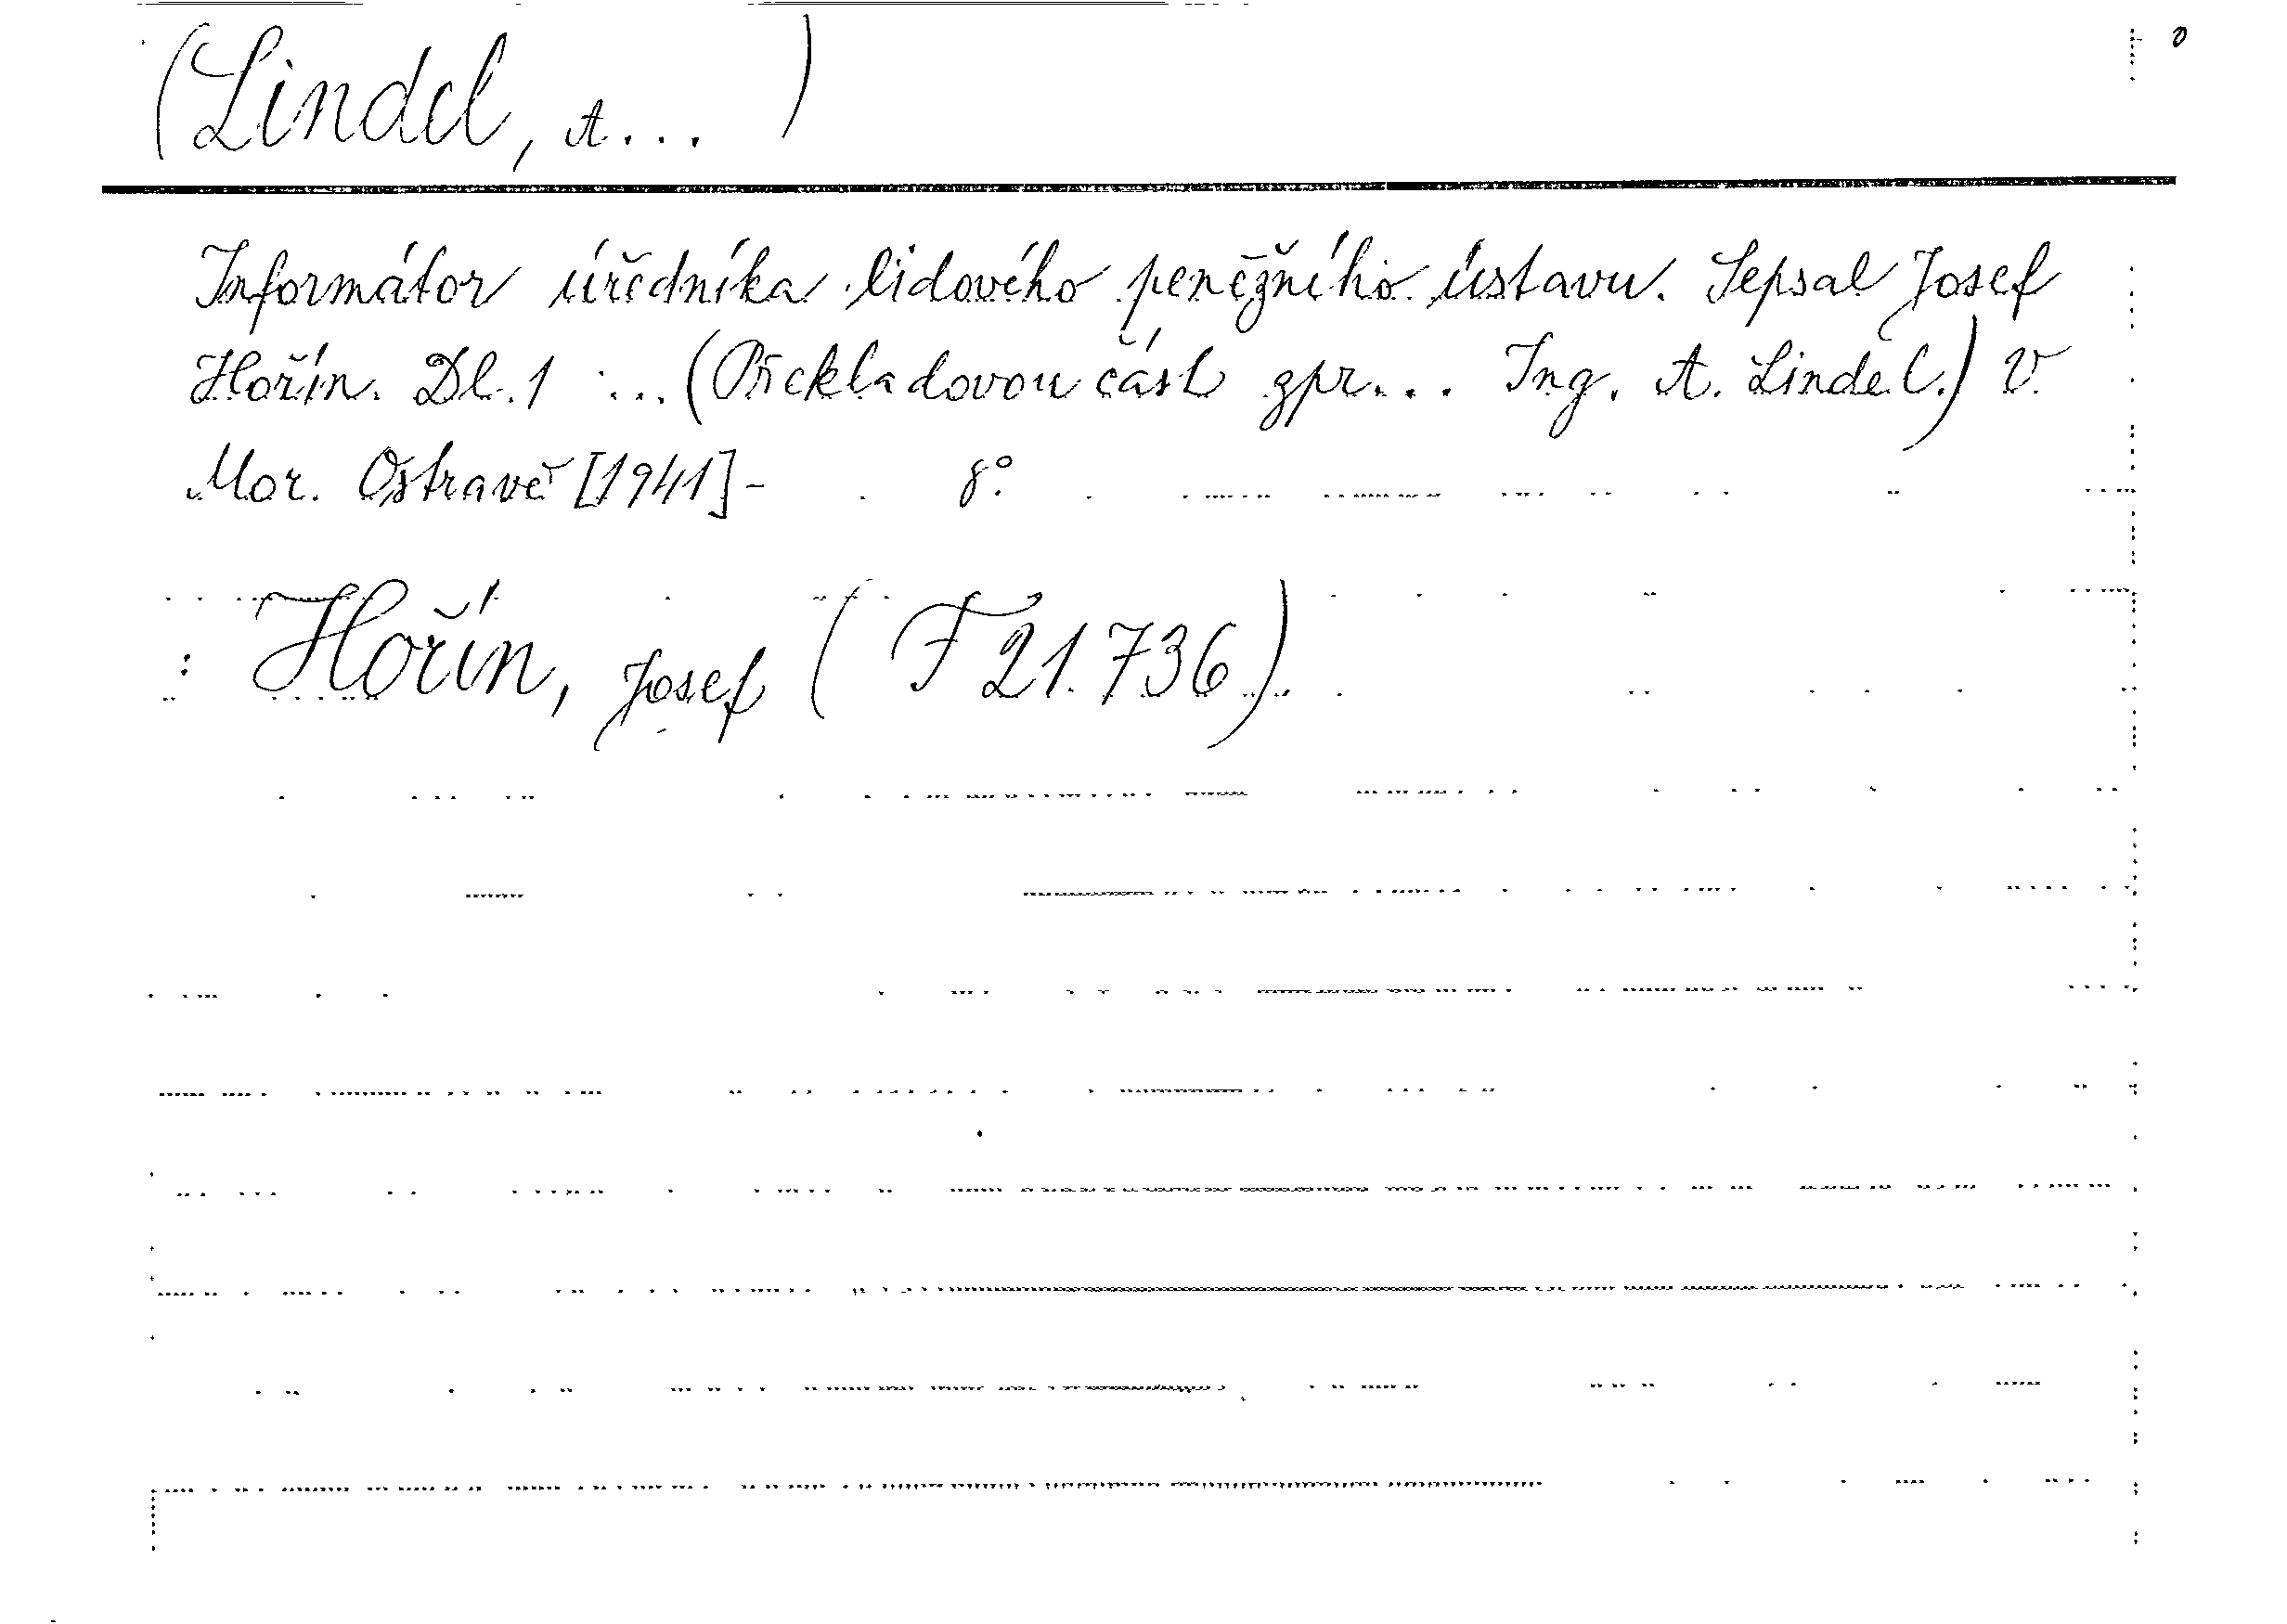 (Lindel, A... )
Informátor úředníka lidového peněžního ústavu. Sepsal Josef
Hořín. Dl. 1 ... (Překladovou část zpr... Ing. A. Lindel.) V
Mor. Ostravě [1941]- 8°.
: Hořín, Josef ( F 21.736).